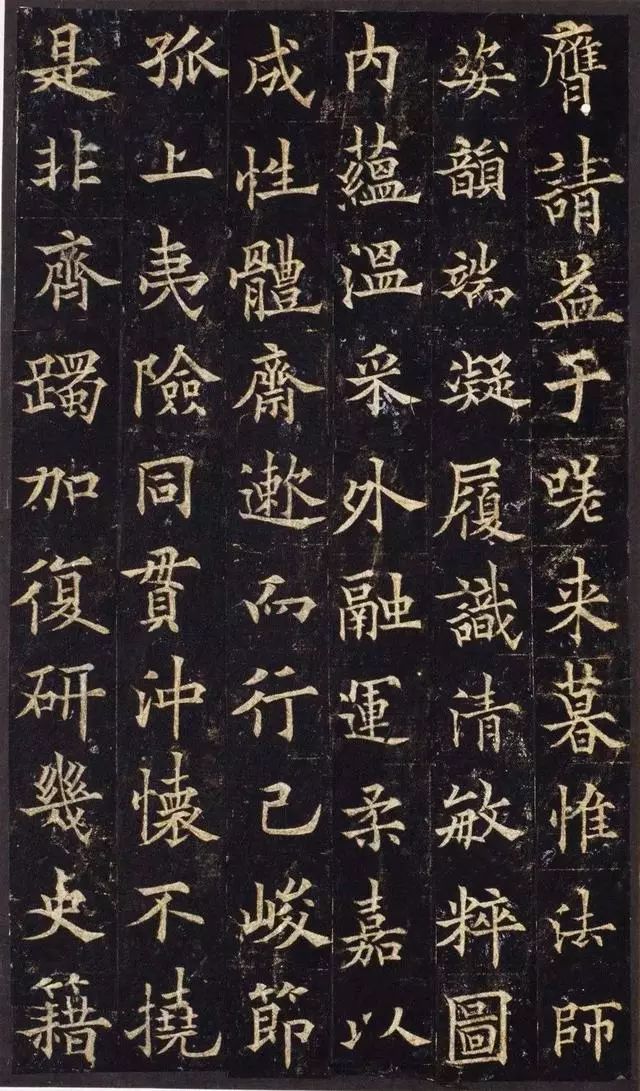 膺請益于嗟来暮惟法師
姿韻端凝履識清敏粹圖
内蘊溫采外融運柔嘉以
成性體齋遬而行己峻節
孤上夷險同貫沖懷不撓
是非齊躅加復研幾史籍